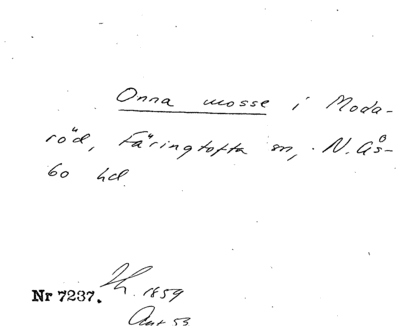 Onna mosse i Moda-
röd, Färingtofta sn, N. Ås-
bo hd.
Nr 7237. Th. 1859
Ant 53